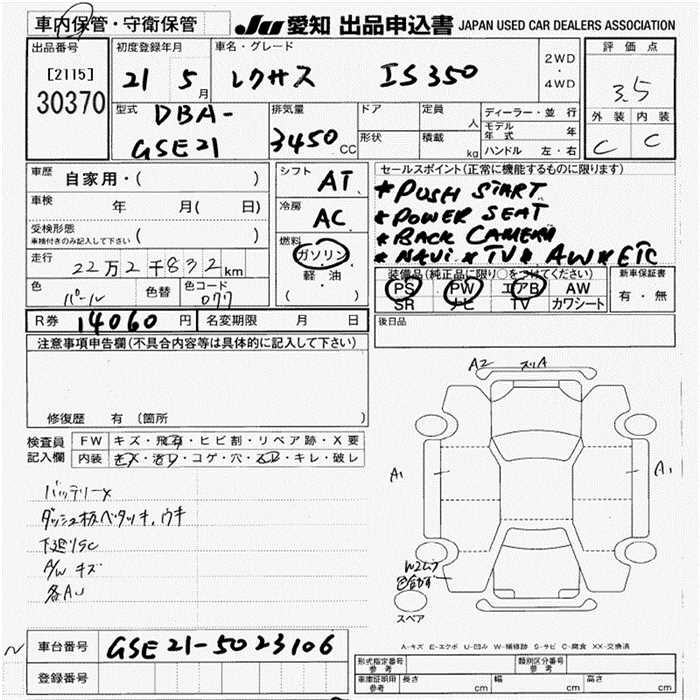 車内保管・守衛保管
JU 愛知 出品申込書 JAPAN USED CAR DEALERS ASSOCIATION
出品番号
[2115]
30370
初度登録年月
21 5月
車名・グレード
レクサス IS350
2WD
・
4WD
評価点
3.5
外装 内装
C C
型式
DBA-
GSE21
排気量
3450 CC
ドア
形状
定員
人
積載
kg
ディーラー・並行
モデル年式 年
ハンドル 左・右
車歴 自家用・( )
車検 年 月( 日)
受検形態
車検付きのみ記入して下さい ( )
走行 22万2千832km
色 パール 色替 色コード 077
シフト AT
冷房 AC
燃料
ガソリン
軽・油
( )
セールスポイント(正常に機能するものに限ります)
*PUSH START
*POWER SEAT
*BACK CAMERA
*NAVI *TV* AW*ETC
装備品(純正品に限り○をつけてください)
PS PW エアB AW
SR ナビ TV カワシート
新車保証書
有・無
R券 14060円 名変期限 月 日
後日品
注意事項申告欄(不具合内容等は具体的に記入して下さい)
修復歴 有 (箇所 )
検査員記入欄
FW キズ・飛石・ヒビ割・リペア跡・X要
内装 キズ・汚レ・コゲ・穴・スレ・キレ・破レ
バッテリーX
ダッシュ板ベタツキ、ウキ
下廻りSC
A/W キズ
各AU
A2 スリA
A1
A1
スペア
A-キズ E-エクボ U-凹み W-補修跡 S-サビ C-腐食 XX-交換済
車台番号 GSE21-5023106
登録番号
形式指定番号 参考
類別区分番号 参考
車庫証明用 参考 長さ cm 幅 cm 高さ cm